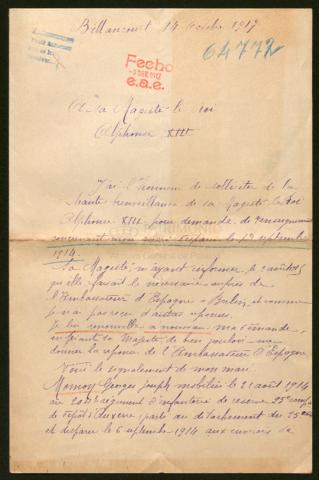 Billancourt 14 1917
64772
Fecho
e.a.e.
A Sa Majesté le roi
Alphonse XIII
J'ai l'honneur de solliciter de la
haute bienveillance de sa Majesté le Roi
Alphonse XIII pour demande de renseignements
concernant mon mari disparu le septembre
1914.
Sa Majesté m'ayant informer, le 2 août 1915
qu'elle faisait le nécessaire auprès de
l'Ambassadeur d'Espagne à Berlin, et comme
je n'ai pas reçu d'autres réponses.
Je renouvelle a nouveau ma demande,
sa Majesté de bien vouloir me
donner la réponse de l'Ambassadeur d'Espagne
Voici le signalement de mon mari
Georges Joseph mobilisé le 21 août 1914
au régiment d'infanterie de réserve 25e
dépôt d'Auxerre, partie au détachement du 25 août
et disparu le 6 septembre 1914 aux environs de